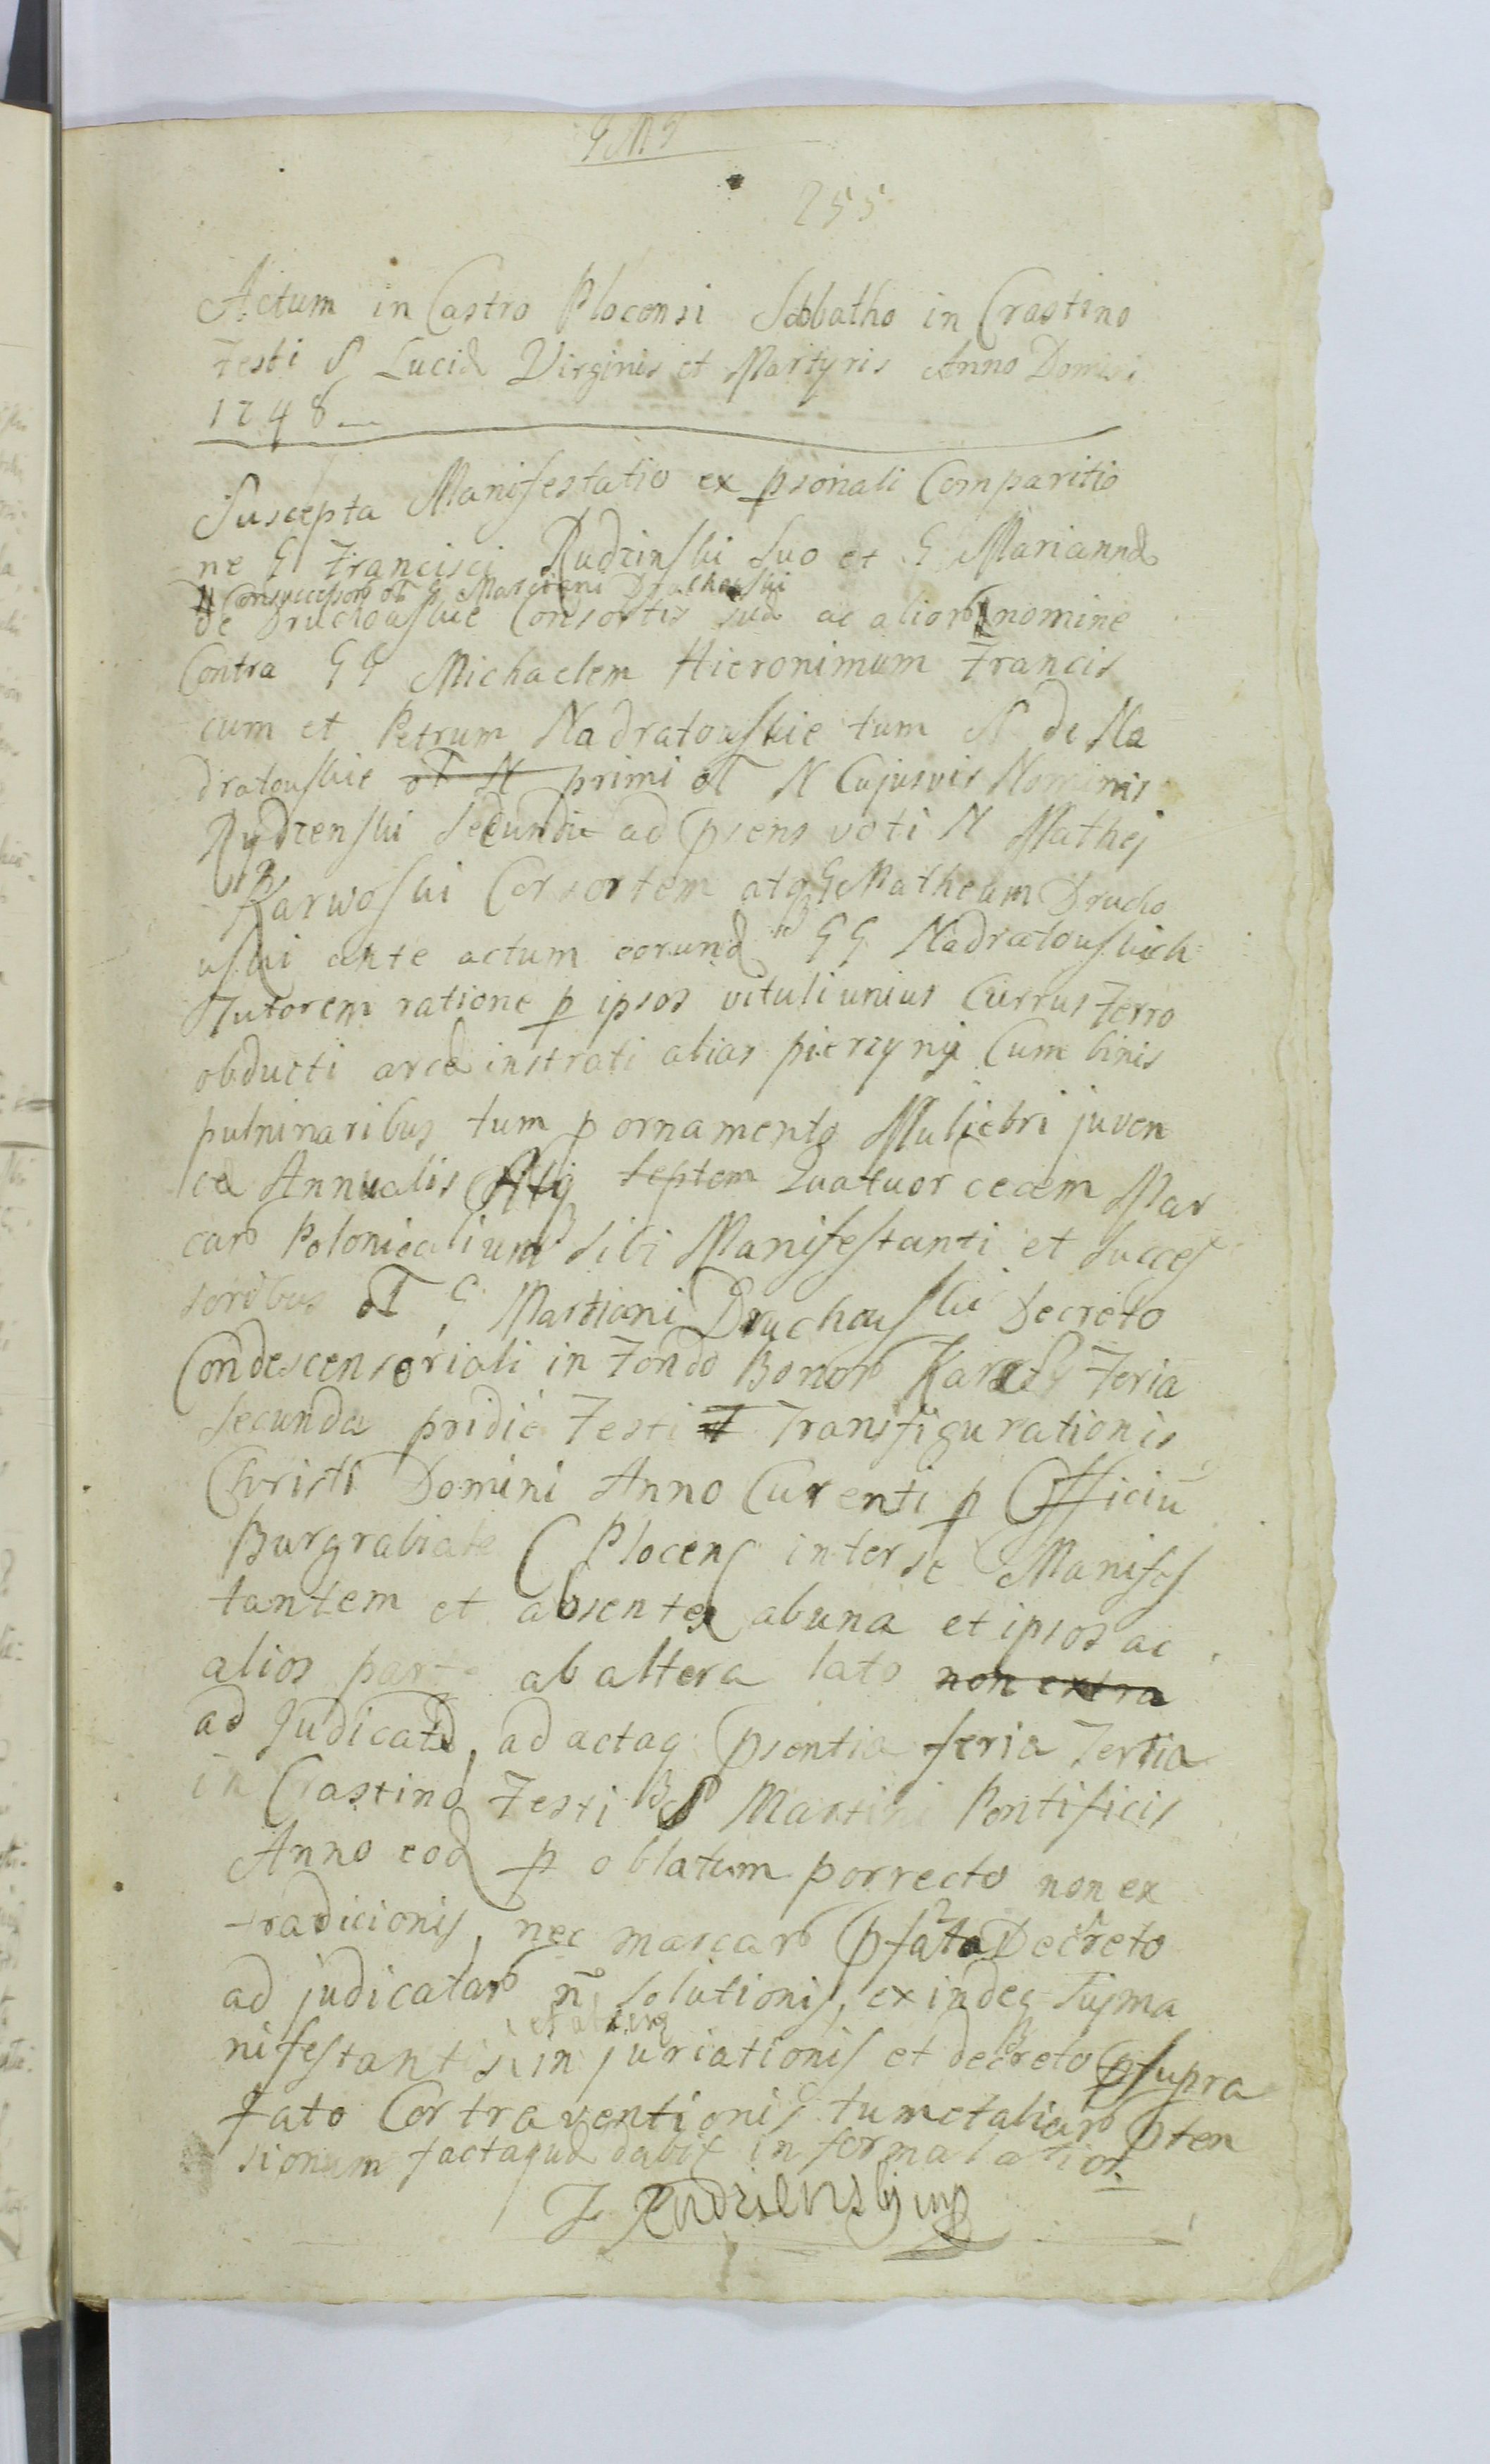 255
Actum in Castro Plocensi Sabbatho in Crastino
Festi S Luciæ Virginis et Martyris Anno Domini
1748
Suscepta Manifestatio ex psonali Comparitio
ne G Francisci Rudzinski Suo et G Mariannæ
Consuccessor olT G Marciani Druchouski
de Druchouskie Consortis suæ ac alior nomine
Contra GG Michaelem Hieronimum Francis
cum et Petrum Nadratouskie tum N de Na
dratouskie olT N primi olT N Cujusvis Nominis
Rydzenski Secundi ad psens voti N Mathej
Karwoski Consortem atq G Matheum Drucho
uski ante actum eorund GG Nadratouskich
Tutorem ratione p ipsos vituli unius Currus Ferro
obducti arcæ instrati alias pierzyny Cum binis
pulninaribus tum p ornamento Muliebri juven
cæ Annualis Atq septem Quatuor decem Mar
car Polonicalium sibi Manifestanti et Succes
soribus olT G Martiani Druchouski Decreto
Condescensoriali in Fondo Bonor Feria
Secunda pridie Festi Transfigurationis
Christi Domini Anno Curenti p Officiu
Burgrabiale Plocens inter se Manifes
tantem et absentes ab una et ipsos ac
alios parte ab altera lato non extra
ad Judicatæ, ad actaq psentia feria Tertia
in Crastino Festi S Martini Pontificis
Anno eod p oblatum porrecto non ex
tradicionis, nec marcar pfato Decreto
ad judicatar n solutionis, exindeq Suj ma
nifestantis injuriationis et decreto supra
fato Contraventionis tum et aliar pten
sionum factaquæ dabit in forma lation
F Rudzienski mp